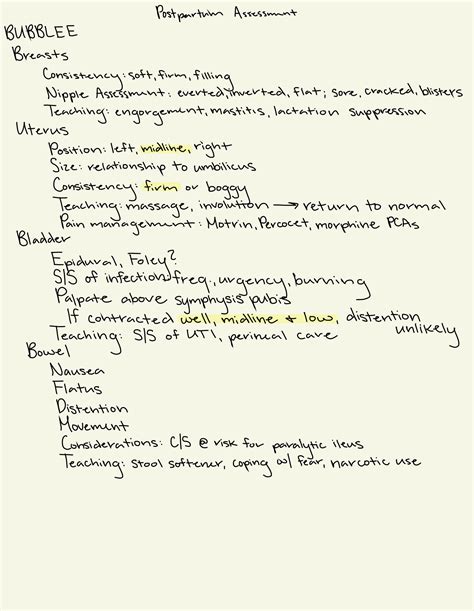 Postpartum Assessment
BUBBLEE
Breasts
Consistency: soft, firm, filling
Nipple Assessment: everted, inverted, flat; sore, cracked, blisters
Teaching: engorgement, mastitis, lactation suppression
Uterus
Position: left, midline, right
Size: relationship to umbilicus
Consistency: firm or boggy
Teaching: massage, involution → return to normal
Pain management: Motrin, Percocet, morphine PCAs
Bladder
Epidural, Foley?
S/S of infection freq., urgency, burning
Palpate above symphysis pubis
If contracted well, midline + low, distention unlikely
Teaching: S/S of UTI, perineal care
Bowel
Nausea
Flatus
Distention
Movement
Considerations: C/S @ risk for paralytic ileus
Teaching: stool softener, coping w/ fear, narcotic use